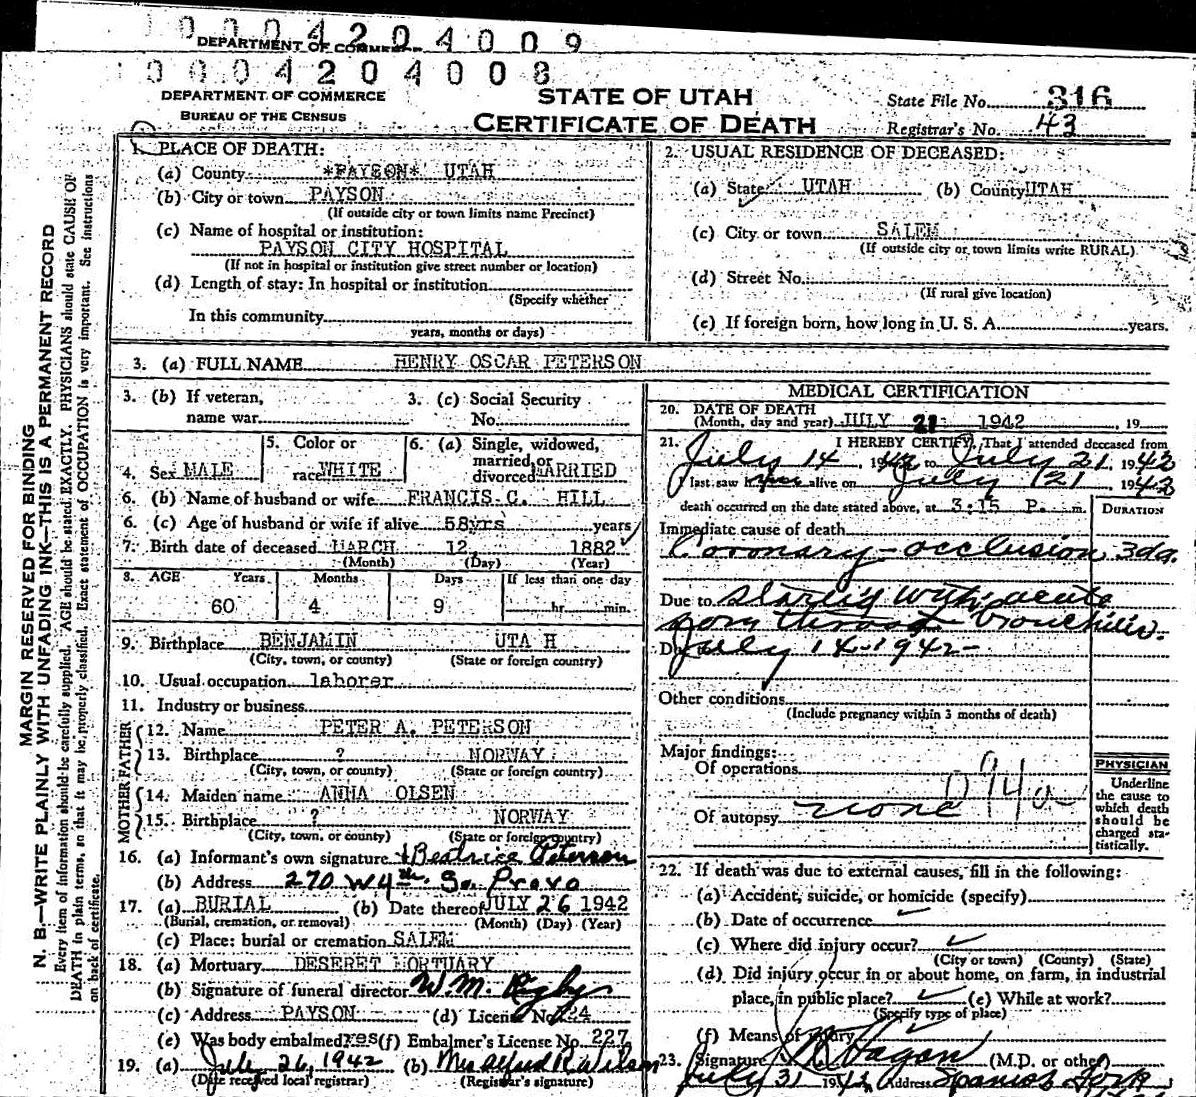 0 0 0 4 2 0 4 0 0 9
DEPARTMENT OF COMMERCE
0 0 0 4 2 0 4 0 0 8
DEPARTMENT OF COMMERCE
BUREAU OF THE CENSUS
STATE OF UTAH
CERTIFICATE OF DEATH
State File No. 316
Registrar's No. 43
MARGIN RESERVED FOR BINDING
N. B—WRITE PLAINLY WITH UNFADING INK—THIS IS A PERMANENT RECORD
Every item of information should be carefully supplied. AGE should be stated EXACTLY. PHYSICIANS should state CAUSE OF
DEATH in plain terms, so that it may be properly classified. Exact statement of OCCUPATION is very important. See instructions
on back of certificate.
1. PLACE OF DEATH:
(a) County *PAYSON* UTAH
(b) City or town PAYSON
(If outside city or town limits name Precinct)
(c) Name of hospital or institution:
PAYSON CITY HOSPITAL
(If not in hospital or institution give street number or location)
(d) Length of stay: In hospital or institution
(Specify whether
In this community
years, months or days)
2. USUAL RESIDENCE OF DECEASED:
(a) State UTAH (b) County UTAH
(c) City or town SALEM
(If outside city or town limits write RURAL)
(d) Street No.
(If rural give location)
(e) If foreign born, how long in U. S. A. years.
3. (a) FULL NAME HENRY OSCAR PETERSON
3. (b) If veteran, name war
3. (c) Social Security No.
4. Sex MALE
5. Color or race WHITE
6. (a) Single, widowed, married, or divorced MARRIED
6. (b) Name of husband or wife FRANCIS C. HILL
6. (c) Age of husband or wife if alive 58yrs years
7. Birth date of deceased MARCH 12, 1882
(Month) (Day) (Year)
8. AGE Years Months Days If less than one day
60 4 9 hr. min.
9. Birthplace BENJAMIN UTA H
(City, town, or county) (State or foreign country)
10. Usual occupation laborer
11. Industry or business
FATHER
12. Name PETER A. PETERSON
13. Birthplace ? NORWAY
(City, town, or county) (State or foreign country)
MOTHER
14. Maiden name ANNA OLSEN
15. Birthplace ? NORWAY
(City, town, or county) (State or foreign country)
16. (a) Informant's own signature Beatrice Peterson
(b) Address 270 W 4th So. Provo
17. (a) BURIAL (b) Date thereof JULY 26 1942
(Burial, cremation, or removal) (Month) (Day) (Year)
(c) Place: burial or cremation SALEM
18. (a) Mortuary DESERET MORTUARY
(b) Signature of funeral director W. M. Rigby
(c) Address PAYSON (d) License No. 724
(e) Was body embalmed yes (f) Embalmer's License No. 227
19. (a) July 26, 1942 (b) Mrs Alfred R. Wilson
(Date received local registrar) (Registrar's signature)
MEDICAL CERTIFICATION
20. DATE OF DEATH
(Month, day and year) JULY 21 1942, 19
21. I HEREBY CERTIFY, That I attended deceased from
July 14, 1942 to July 21, 1942
I last saw him alive on July 21 1942
death occurred on the date stated above, at 3:15 P. m.
DURATION
Immediate cause of death
Coronary-occlusion 3da.
Due to started with acute
sore throat bronchitis.
July 14-1942-
Other conditions
(Include pregnancy within 3 months of death)
Major findings:
Of operations
094a
Of autopsy none
PHYSICIAN
Underline
the cause to
which death
should be
charged sta-
tistically.
22. If death was due to external causes, fill in the following:
(a) Accident, suicide, or homicide (specify)
(b) Date of occurrence
(c) Where did injury occur?
(City or town) (County) (State)
(d) Did injury occur in or about home, on farm, in industrial
place, in public place? (e) While at work?
(Specify type of place)
(f) Means of injury
23. Signature Hagan (M.D. or other)
July 31 1942 Address Spanish Fork